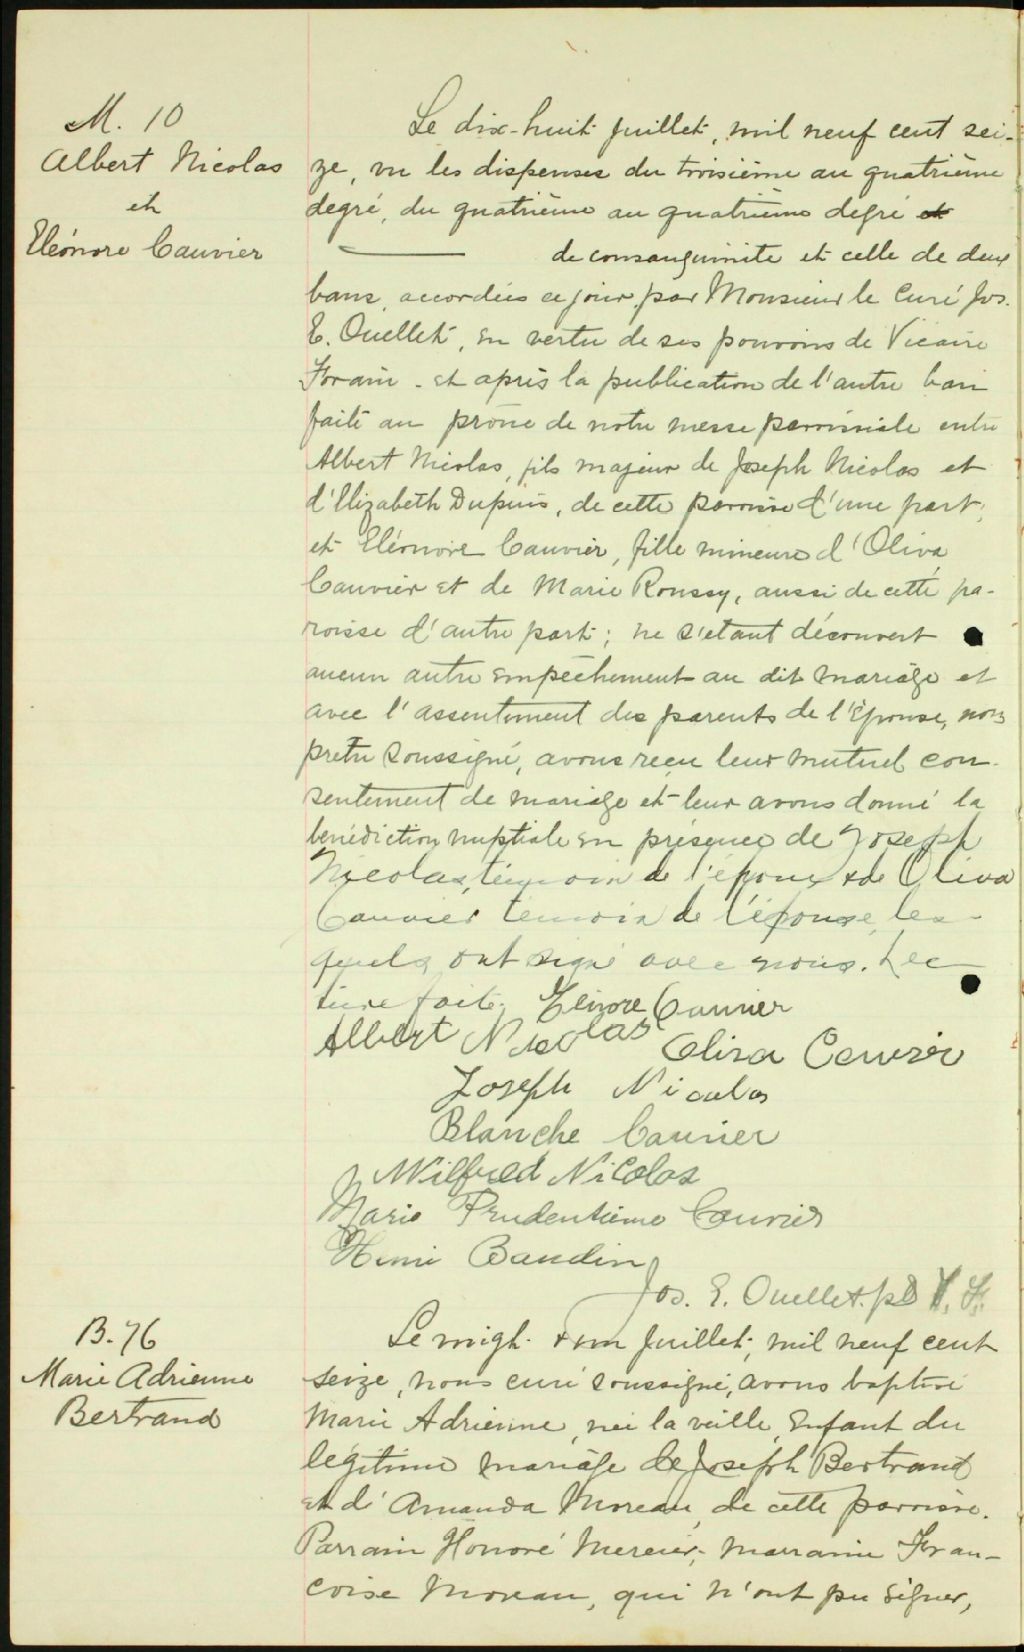 M. 10
Albert Nicolas
et
Eléonore Cauvier
Le dix-huit juillet, mil neuf cent sei-
ze, vu les dispenses du troisième au quatrième
degré, du quatrième au quatrième degré et
de consanguinité et celle de deux
bans accordées ce jour par Monsieur le Curé Jos.
E. Ouellet, en vertu de ses pouvoirs de Vicaire
Forain - et après la publication de l'autre ban
faite au prône de notre messe paroissiale entre
Albert Nicolas, fils majeur de Joseph Nicolas et
d'Elizabeth Dupuis, de cette paroisse d'une part,
et Eléonore Cauvier, fille mineure d'Oliva
Cauvier et de Marie Roussy, aussi de cette pa-
roisse d'autre part; ne s'étant découvert
aucun autre empêchement au dit mariage et
avec l'assentiment des parents de l'épouse, nous
prêtre soussigné, avons reçu leur mutuel con-
sentement de mariage et leur avons donné la
bénédiction nuptiale en présence de Joseph
Nicolas, témoin de l'époux & de Oliva
Cauvier témoin de l'épouse, les-
quels ont signé avec nous. Lec-
ture faite. Elenore Cauvier
Albert Nicolas Oliva Cauvier
Joseph Nicolas
Blanche Cauvier
Wilfred Nicolas
Marie Prudentienne Cauvier
Henri Baudin
Jos. E. Ouellet. p V. F.
B. 76
Marie Adrienne
Bertrand
Le vingt & un juillet, mil neuf cent
seize, nous curé soussigné, avons baptisé
Marie Adrienne, née la veille, enfant du
légitime mariage de Joseph Bertrand
et d'Amanda Moreau, de cette paroisse.
Parrain Honoré Mercier, marraine Fran-
coise Moreau, qui n'ont pu signer,